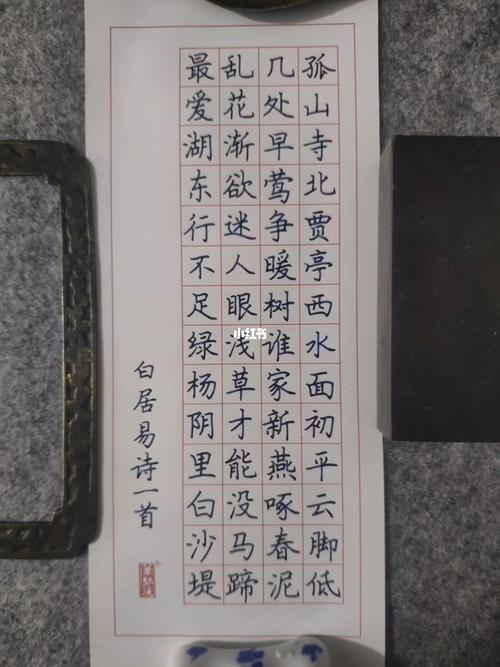 孤山寺北贾亭西水面初平云脚低
几处早莺争暖树谁家新燕啄春泥
乱花渐欲迷人眼浅草才能没马蹄
最爱湖东行不足绿杨阴里白沙堤
白居易诗一首
小红书